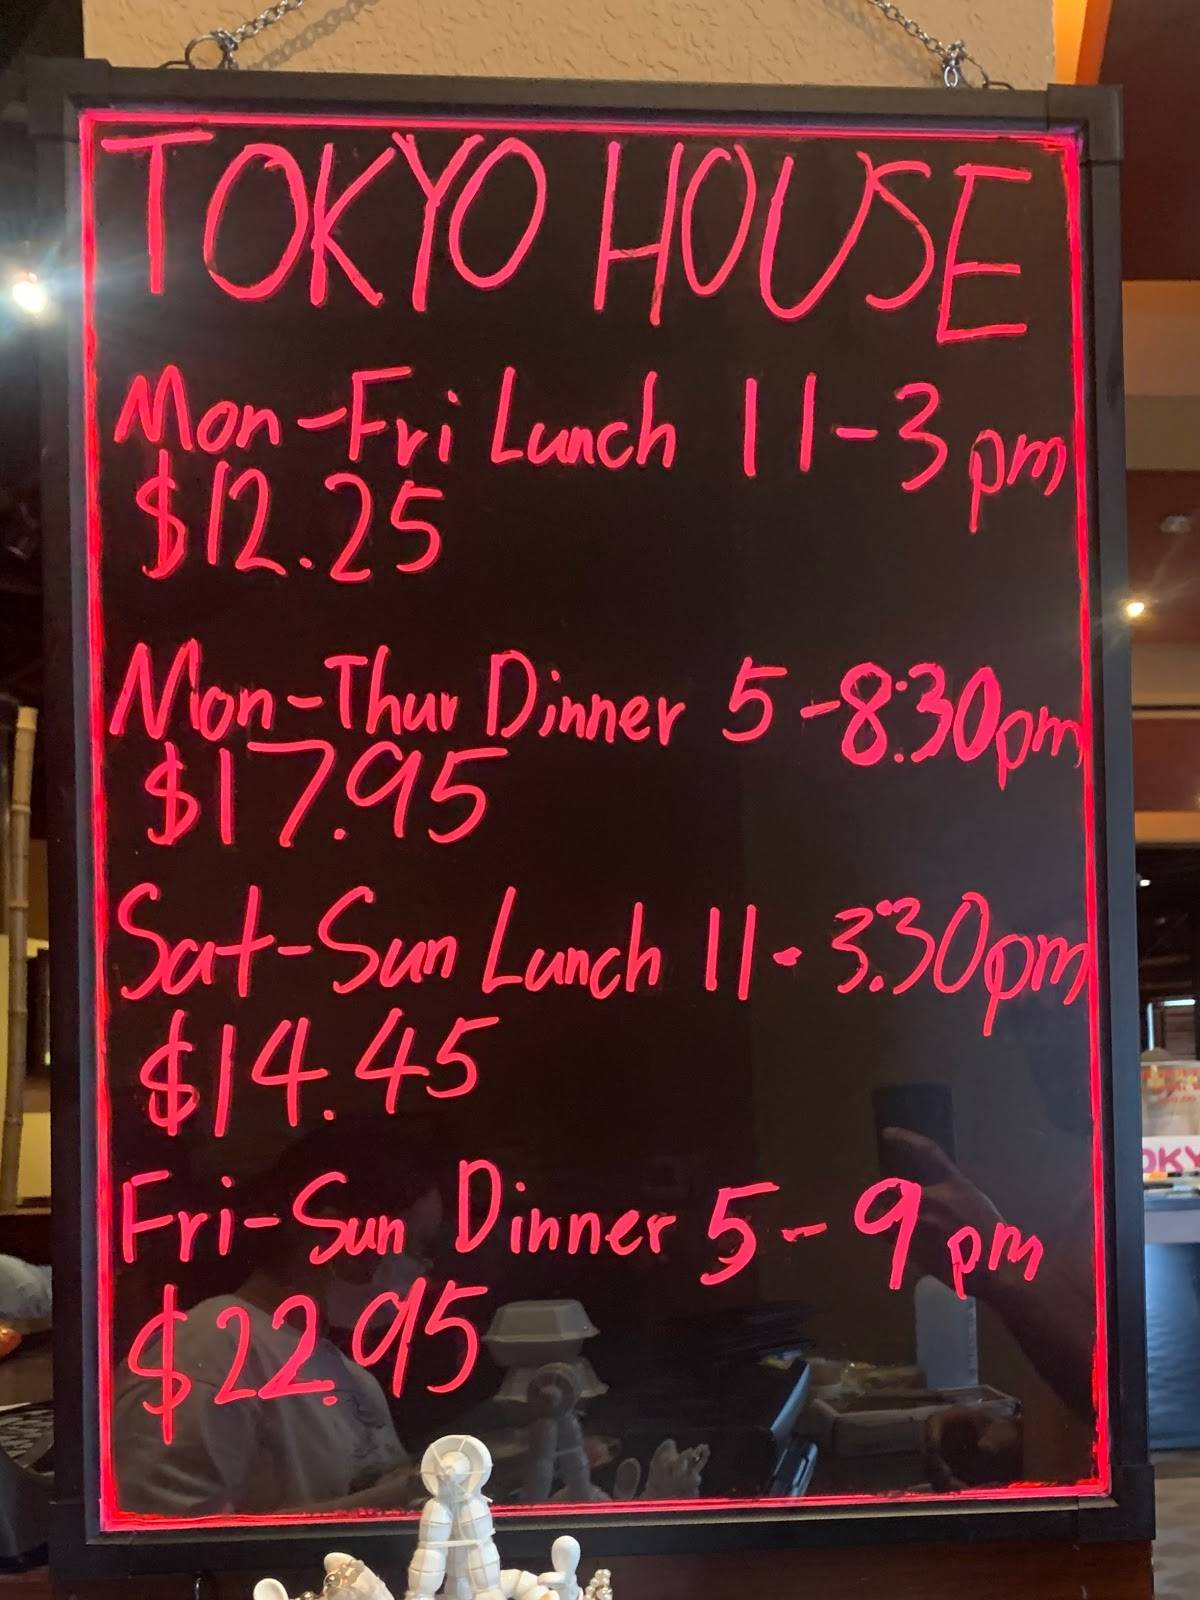 TOKYO HOUSE
Mon-Fri Lunch 11-3 pm
$12.25
Mon-Thur Dinner 5-8:30pm
$17.95
Sat-Sun Lunch 11-3:30pm
$14.45
Fri-Sun Dinner 5-9 pm
$22.95
OKY